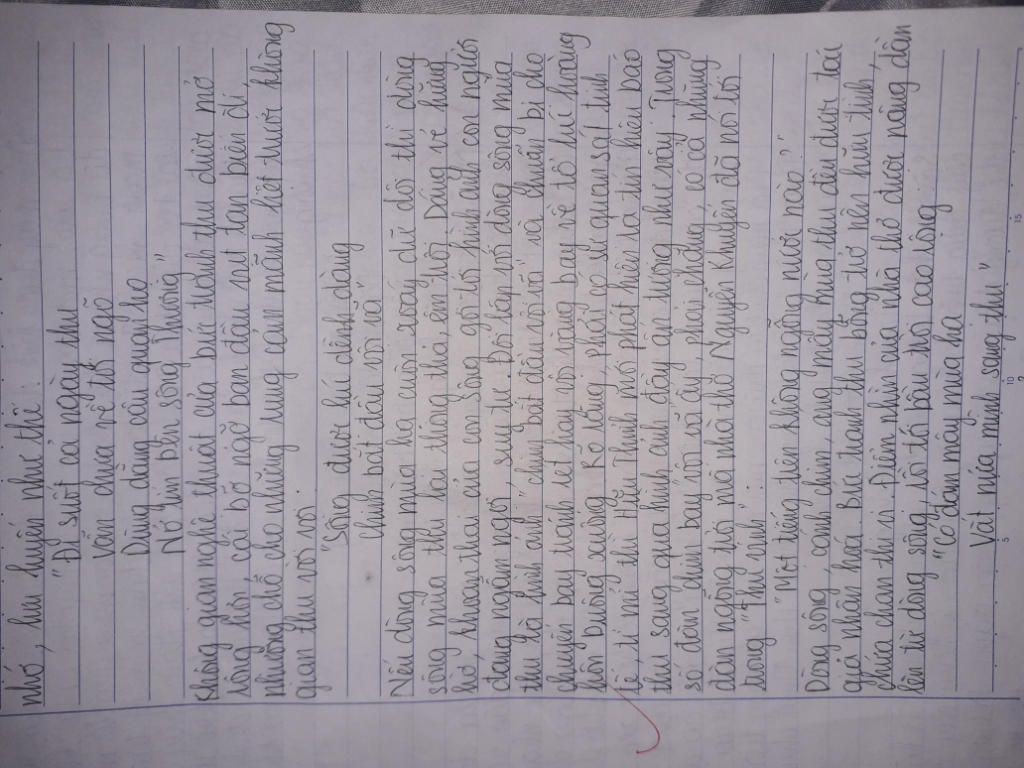 nhớ, lưu luyến như thế:
"Đi suốt cả ngày thu
Vẫn chưa về tới ngõ
Dùng dằng câu quan họ
Nở tím bên sông Thương"
Không gian nghệ thuật của bức tranh thu được mở
rộng hơn, cái bỡ ngỡ ban đầu vụt tan biến đi,
nhường chỗ cho những rung cảm mãnh liệt trước không
gian thu vời vợi.
"Sông được lúc dềnh dàng
Chim bắt đầu vội vã"
Nếu dòng sông mùa hạ cuồn xoáy dữ dội thì dòng
sông mùa thu lại thong thả, êm trôi. Dáng vẻ hững
hờ, khoan thai của con sông gợi tới hình ảnh con người
đang ngẫm ngợi, suy tư. Đối lập với dòng sông mùa
thu là hình ảnh "chim bắt đầu vội vã" và chuẩn bị cho
chuyến bay tránh rét hay vội vàng bay về tổ lúc hoàng
hôn buông xuống. Rõ ràng phải có sự quan sát tinh
tế, tỉ mỉ thì Hữu Thỉnh mới phát hiện ra tín hiệu báo
thu sang qua hình ảnh đầy ấn tượng như vậy. Trong
số đàn chim bay vội vã ấy, phải chăng có cả những
đàn ngỗng trời mà nhà thơ Nguyễn Khuyến đã nói tới
trong "Thu vịnh":
"Một tiếng trên không ngỗng nước nào."
Dòng sông, cánh chim, áng mây mùa thu đều được tác
giả nhân hoá. Bức tranh thu bỗng trở nên hữu tình,
chứa chan thi vị. Điểm nhìn của nhà thơ được nâng dần
lên từ dòng sông, rồi tới bầu trời cao rộng
"Có đám mây mùa hạ
Vắt nửa mình sang thu"